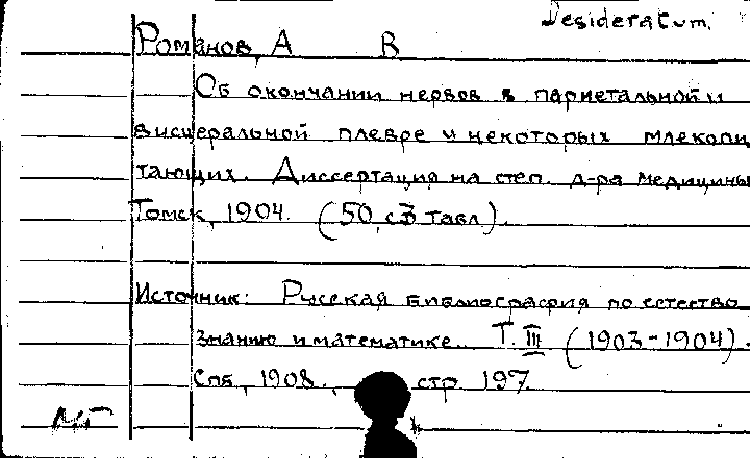 Desideratum.
Романов, А В
Об окончании нервов в париетальной и
висцеральной плевре у некоторых млекопи
тающих. Диссертация на степ. д-ра медицины
Томск, 1904. (50, с 3 табл).
Источник: Русская библиография по естество
знанию и математике. Т. III (1903-1904).
Спб, 1908., стр. 197.